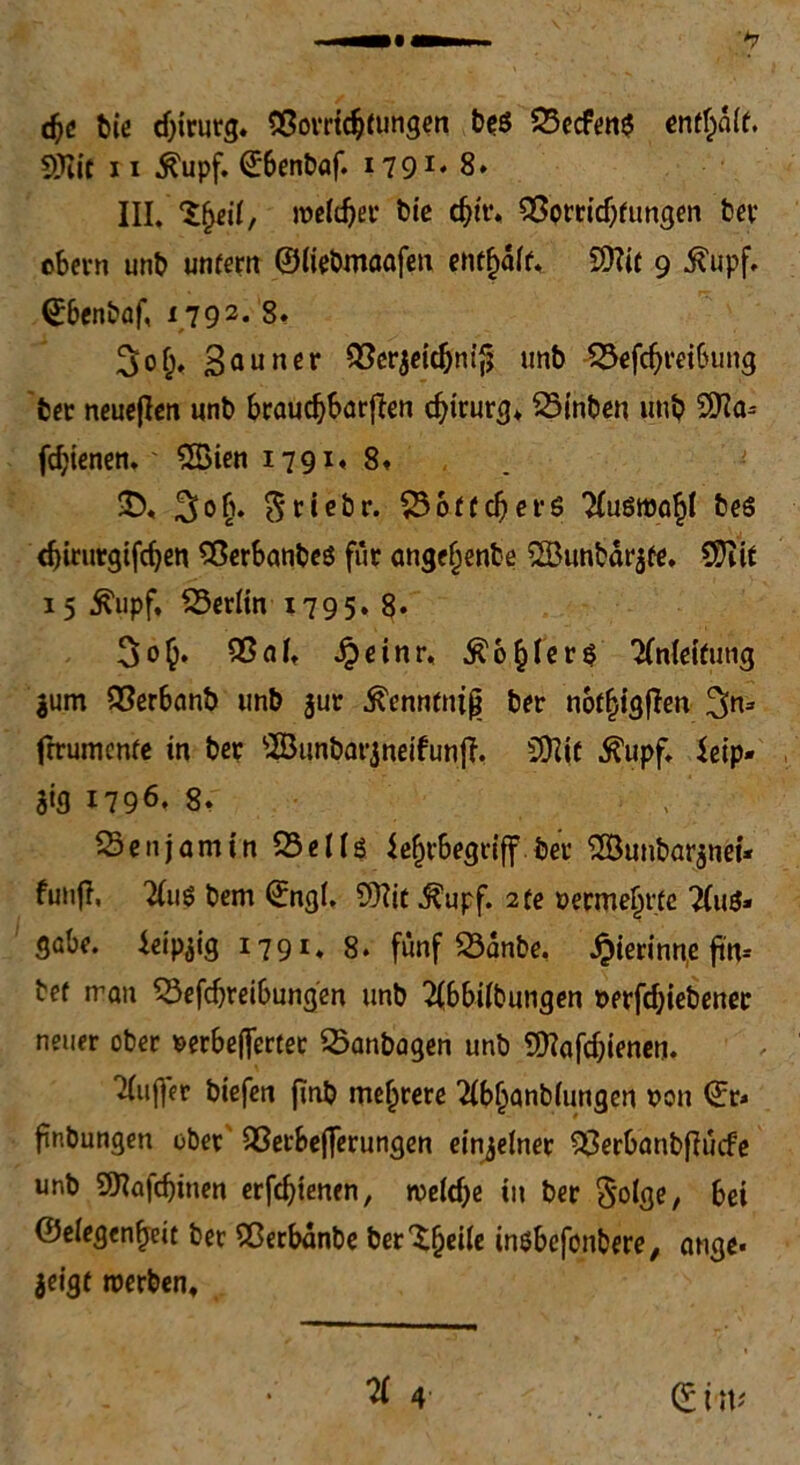 7
che die chirurg. Vorrichtungen des Beckens enthält.
Mit 11 Kupf. Ebendas. 1791. 8.
III. Theil, welcher die chir. Vorrichtungen der
obern und untern Gliedmaasen enthält. Mit 9 Kupf.
Ebendas. 1792. 8.
Joh. Zauner Verzeichniß und Beschreibung
der neuesten und brauchbarsten chirurg. Binden und Ma-
schienen. Wien 1791. 8.
D. Joh. Friedr. Böttchers Auswahl des
chirurgischen Verbandes für angehende Wundärzte. Mit
15 Kupf. Berlin 1795. 8.
Joh. Val. Heinr. Köhlers Anleitung
zum Verband und zur Kenntniß der nöthigsten In-
strumente in der Wundarzneikunst. Mit Kupf. Leip-
zig 1796. 8.
Benjamin Bells Lehrbegriff der Wundarznei-
kunst. Aus dem Engl. Mit Kupf. 2te vermehrte Aus-
gabe. Leipzig 1791. 8. fünf Bände. Hierinne fin-
det man Beschreibungen und Abbildungen verschiedener
neuer oder verbesserter Bandagen und Maschienen.
Ausser diesen sind mehrere Abhandlungen von Er-
findungen oder Verbesserungen einzelner Verbandstücke
und Maschinen erschienen, welche in der Folge, bei
Gelegenheit der Verbände der Theile insbesondere, ange-
zeigt werden.
A 4 Ein-